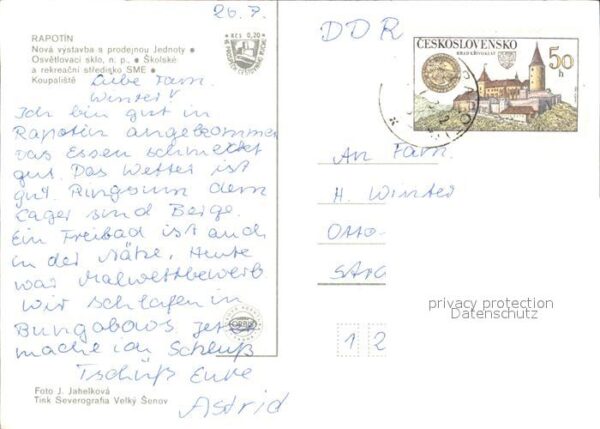 26.7.
DDR
RAPOTÍN
Nová výstavba s prodejnou Jednoty •
Osvětlovací sklo, n. p., • Školské
a rekreační středisko SME •
Koupaliště
Kčs 0,20
ČESKOSLOVENSKO
HRAD KŘIVOKLÁT
50 h
Liebe Fam.
Winter!
Ich bin gut in
Rapotin angekommen
das Essen schmecktet
gut. Das Wetter ist
gut. Ringsum dem
Lager sind Berge.
Ein Freibad ist auch
in der Nähe. Heute
war Malwettbewerb
Wir schlafen in
Bungabows jetzt
mache ich Schluß
Tschüß Eure
Astrid
An Fam.
H. Winter
Otto-
Stra
privacy protection
Datenschutz
1 2
ORBIS
Foto J. Jahelková
Tisk Severografia Velký Šenov